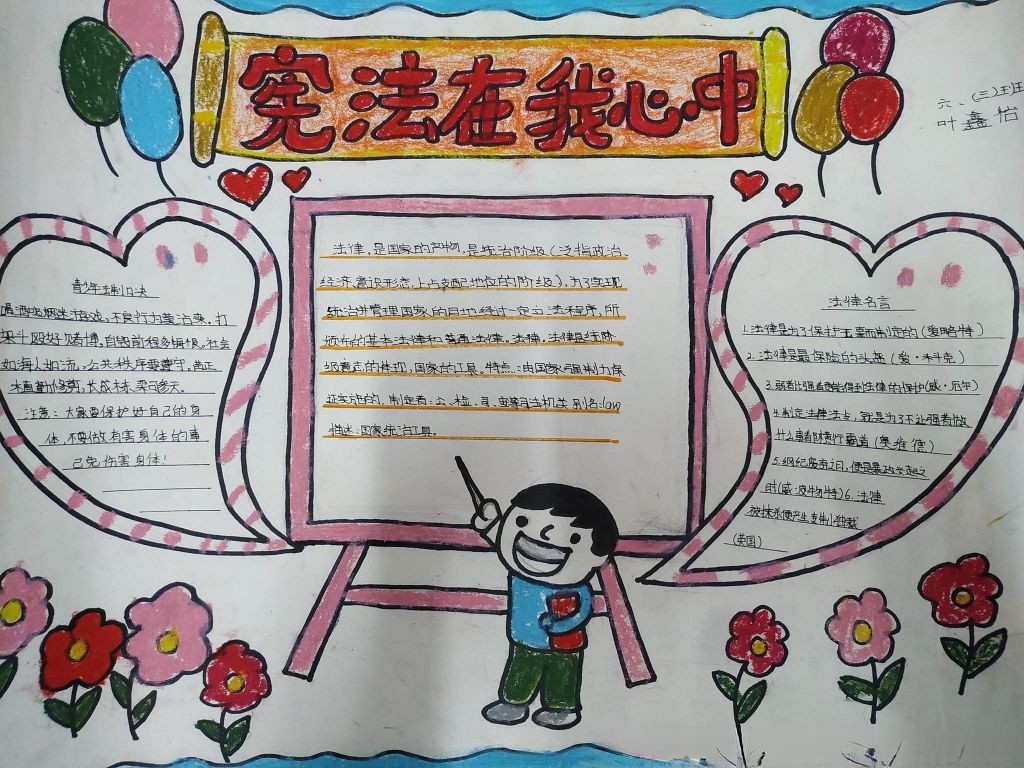 宪法在我心中
六、(三)班
叶鑫怡
青少年法制口决
遇酒吧烟迷打游戏,不良行为要治来。打
架斗殴好赌博,自毁前程多悔恨。社会
如海人如流,公共秩序要遵守,
木直勤修剪,长成材
注意:大家要保护好自己的身
体,不要做有害身体的事
己免伤害身体!
法律,是国家的产物,是统治阶级(泛指政治、
经济、意识形态,上占支配地位的阶级),为了实现
统治并管理国家的目地经过一定立法程序,所
颁布的基本法律和普通法律。法律,法律是统阶
级意志的体现,国家的工具。特点:由国家强制力保
证实施的,制定者:立、检、司、
性述:国家统治工具。
法律名言
1.法律是为了保护无辜而制定的(爱略特)
2.法律是最保险的头盔(爱·科克)
3.弱者比强者更能得到法律的保护(威·厄尔)
4.制定法律法点,就是为了不让强者做
什么事都横行霸道(奥维德)
5.纲纪废弃之日,便是暴政兴起之
时(威·皮物特)6.法律
被抹杀便产生专制独裁
(英国)